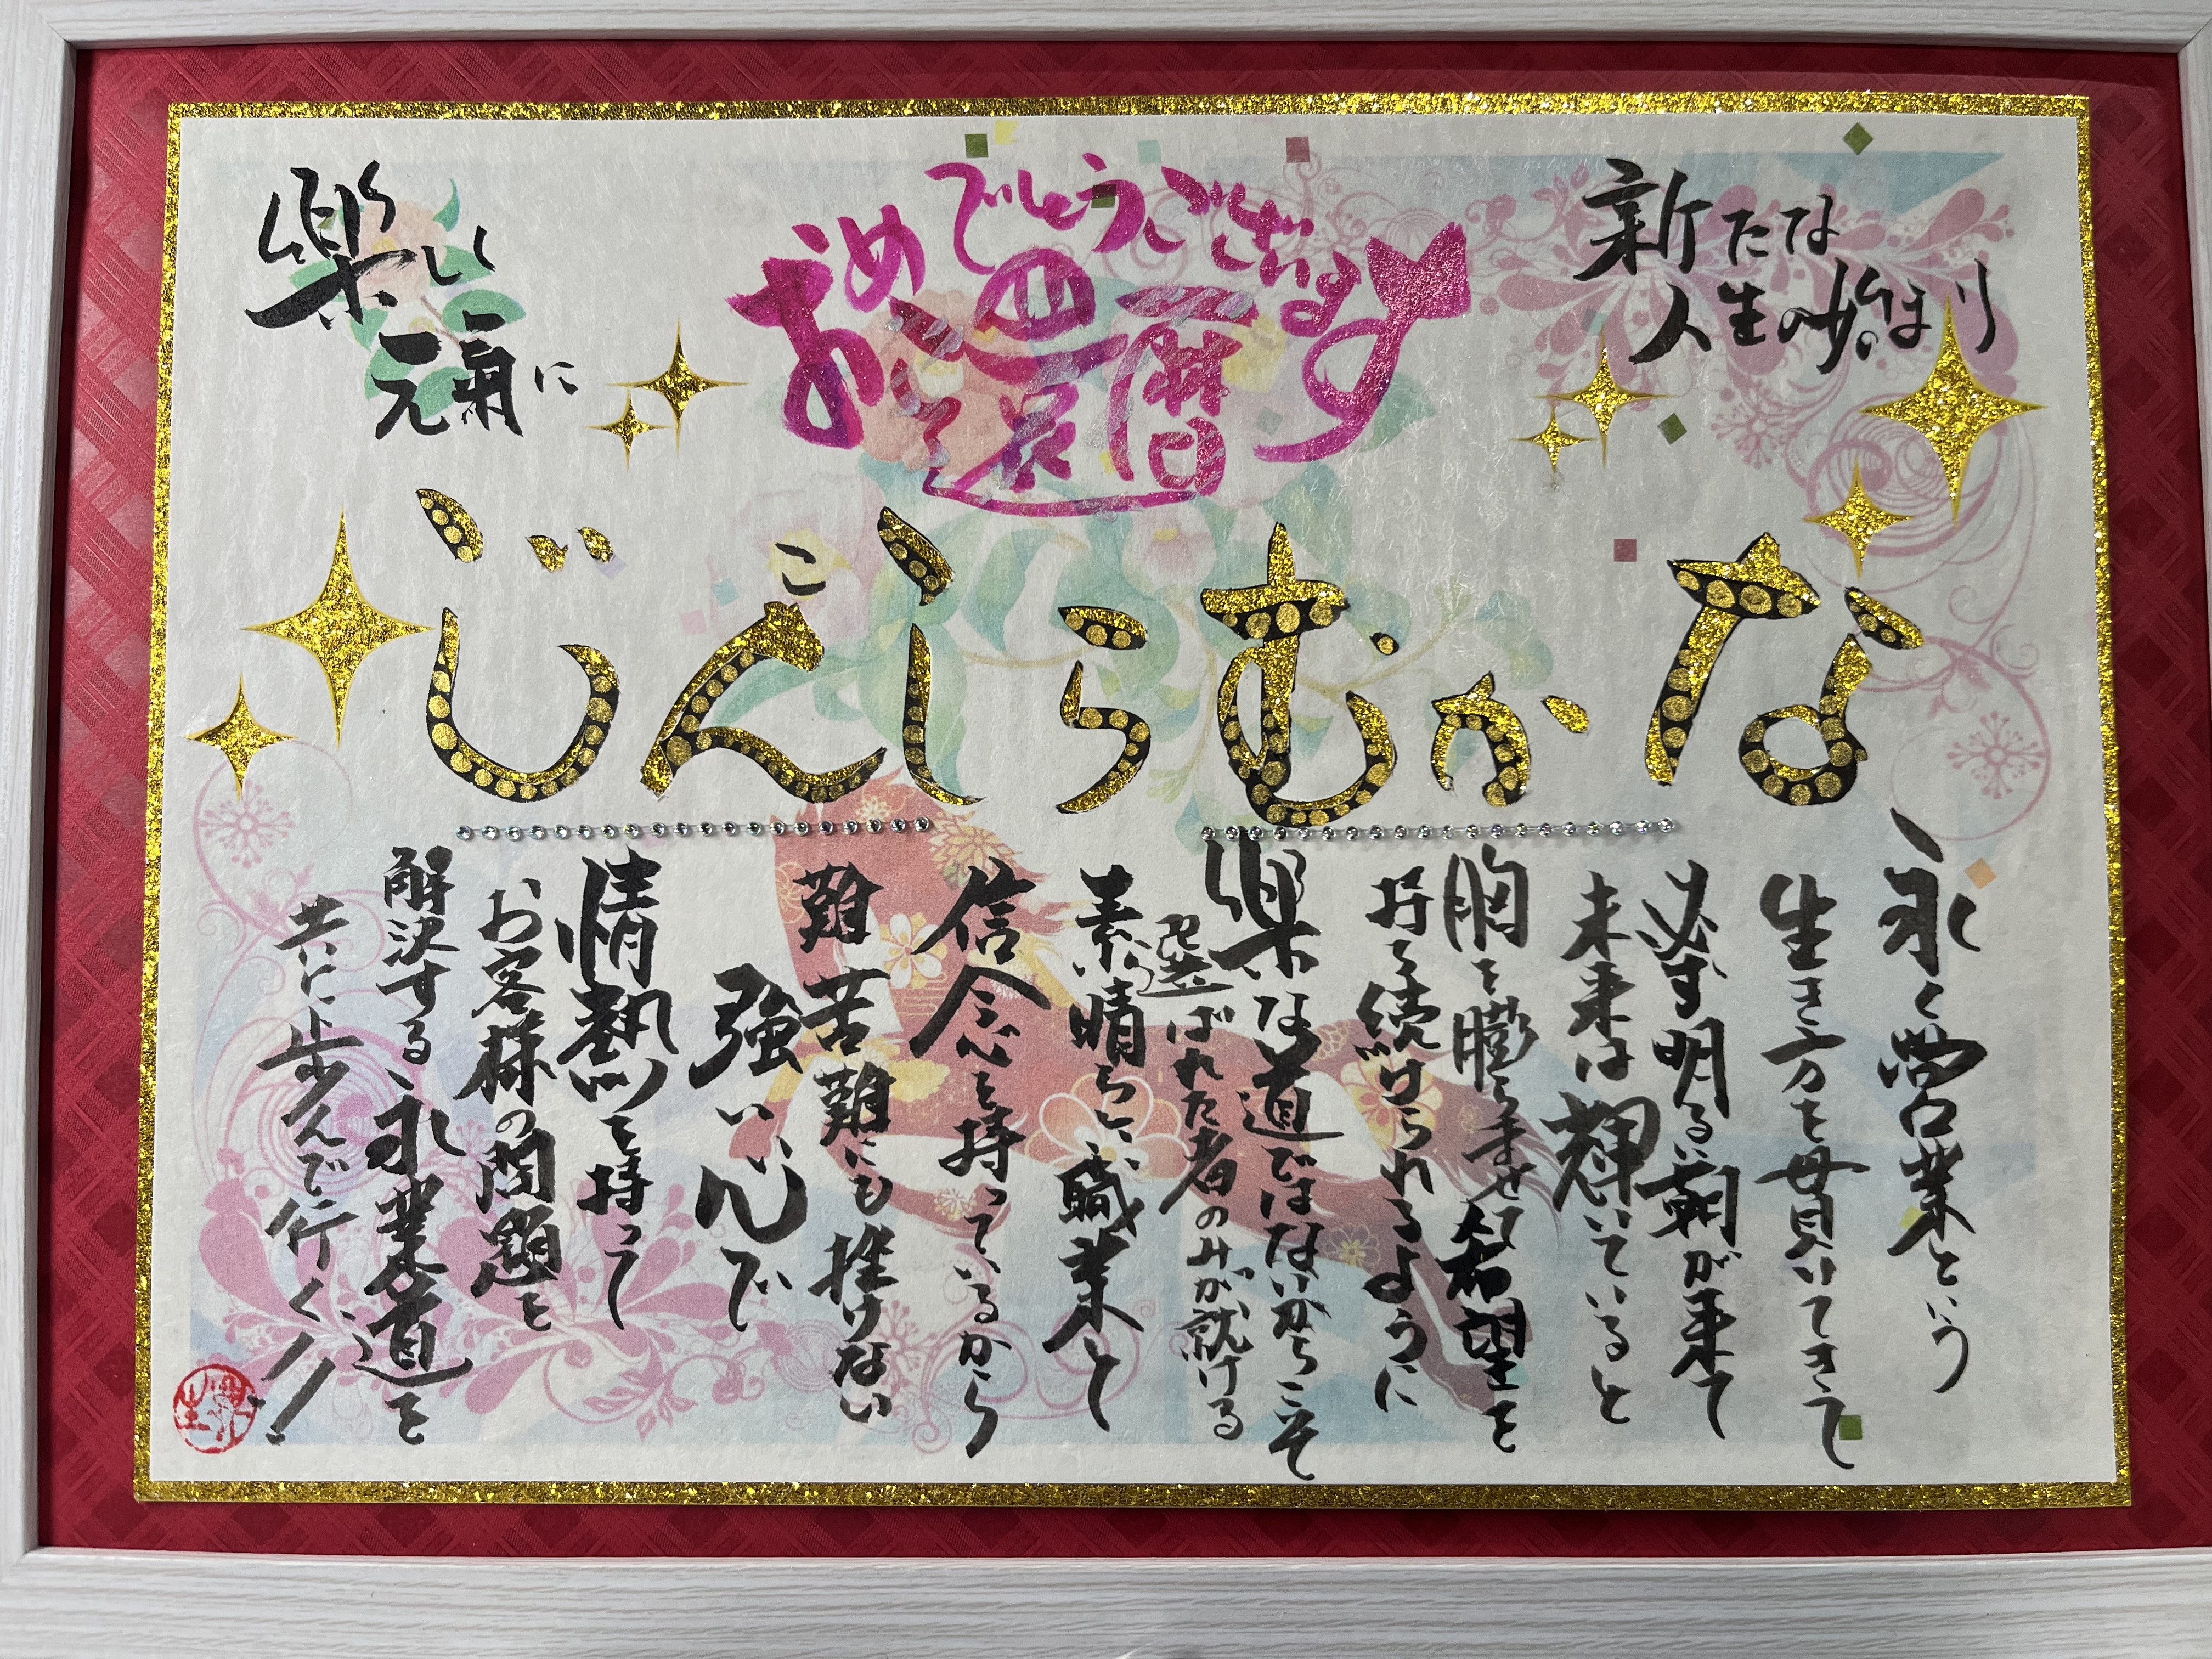 新たな
人生の始まり
おめでとうございます
祝
還暦
楽しく
元気に
なかむらしんじ
永く営業という
生き方を貫いてきて
必ず明るい朝が来て
未来は輝いていると
胸を膨らませて希望を
持ち続けられるように
楽な道ではないからこそ
選ばれた者のみが就ける
素晴らしい職業と
信念を持っているから
難苦難にも挫けない
強い心で
情熱を持って
お客様の問題を
解決する永業道を
共に歩んで行く!!